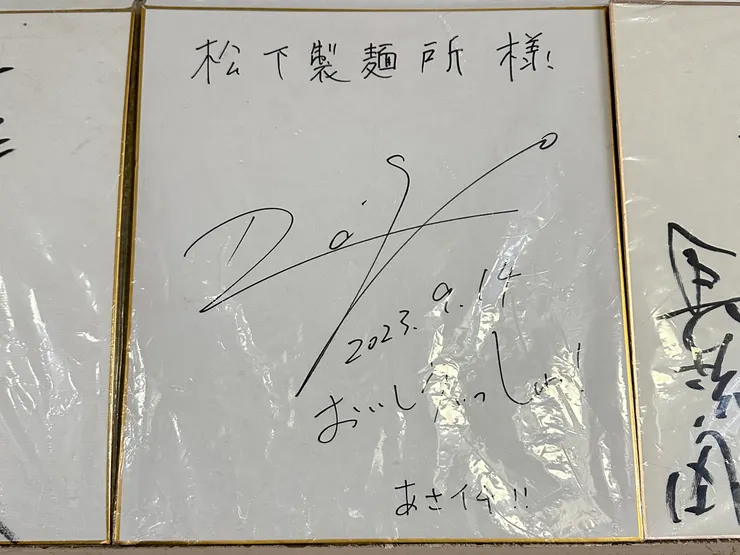 松下製麺所 様!
DaiGo
2023.9.14
おいしぃっしゅ!
あさイチ!!